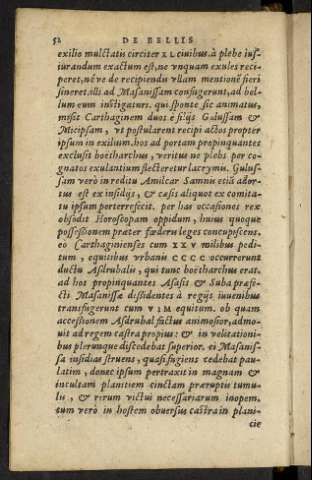 52 DE BELLIS
exilio mulctatis circiter XL ciuibus à plebe iuſ-
iurandum exactum eſt, ne vnquam exules reci-
peret, néve de recipiendis vllam mentionẽ fieri
ſineret. illi ad Maſaniſſam confugerunt, ad bel-
lum eum inſtigaturi. qui ſponte ſic animatus,
miſit Carthaginem duos è filijs Guluſſam &
Micipſam, vt poſtularent recipi actos propter
ipſum in exilium. hos ad portam propinquantes
excluſit boëtharchus, veritus ne plebs per co-
gnatos exulantium flecteretur lacrymis. Guluſ-
ſam verò in reditu Amilcar Samnis etiã ador-
tus eſt ex inſidijs, & cæſis aliquot ex comita-
tu ipſum porterrefecit. per has occaſiones rex
obſidit Horoſcopam oppidum, huius quoque
poſſeſſionem præter fœderu leges concupiſcens.
eo Carthaginienſes cum XXV milibus pedi-
tum, equitibus vrbanis CCCC occurrerunt
ductu Aſdrubalis, qui tunc boëtharchus erat.
ad hos propinquantes Aſaſis & Suba præfe-
cti Maſaniſſæ diſsidentes à regijs iuuenibus
transfugerunt cum VIM equitum. ob quam
acceſsionem Aſdrubal factus animoſior, admo-
uit ad regem caſtra propius: & in velitationi-
bus plerunque diſcedebat ſuperior. at Maſaniſ-
ſa inſidias ſtruens, quaſi fugiens cedebat pau-
latim, donec ipſum pertraxit in magnam &
incultam planitiem cinctam præruptis tumu-
lis, & rerum victui neceſſariarum inopem.
tum verò in hoſtem obuerſus caſtra in plani-
cie